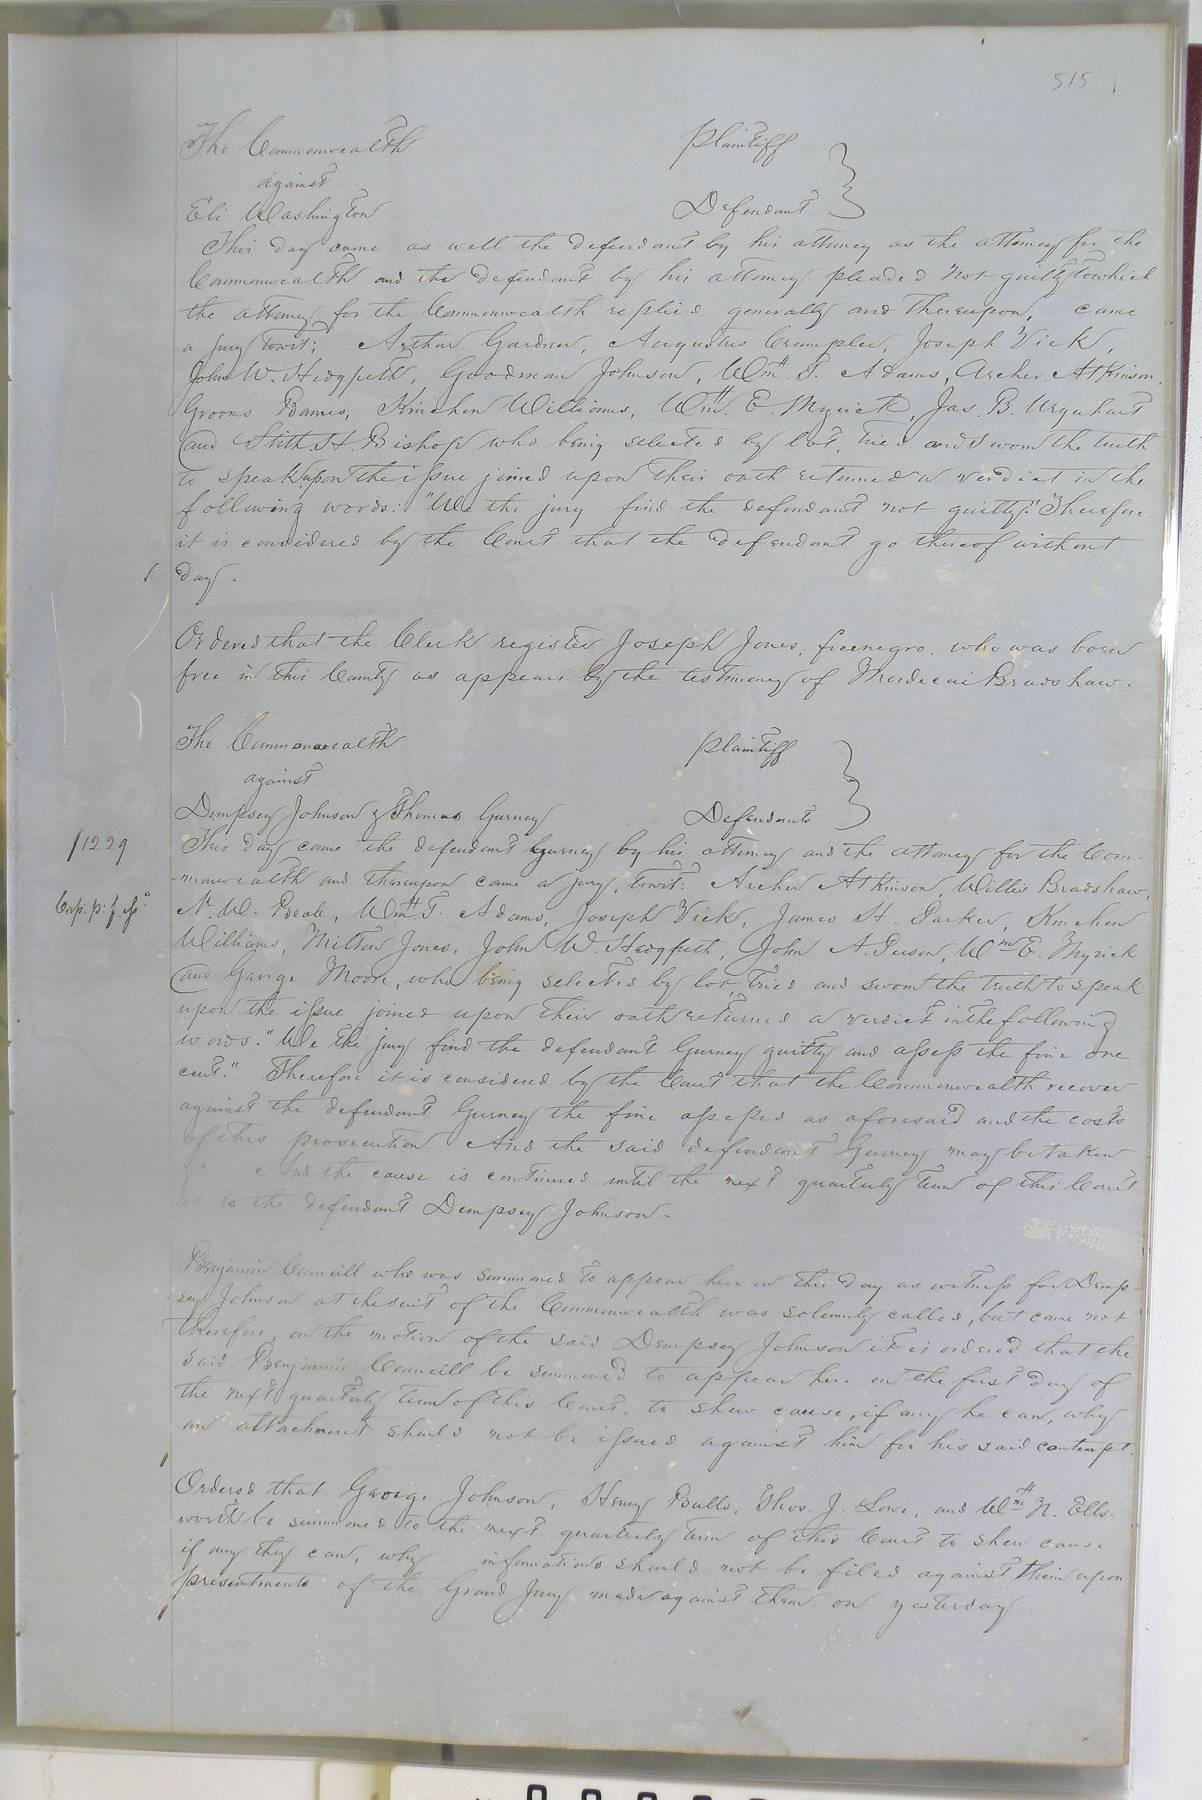 515
The Commonwealth Plaintiff
against
Eli Washington Defendant
This day came as well the defendant by his attorney as the attorney for the
Commonwealth and the defendant by his attorney pleaded not guilty to which
the attorney for the Commonwealth replied generally and Thereupon, came
a jury towit; Arthur Gardner, Augustus Crumpler, Joseph Vick,
John W. Hedgpeth, Goodman Johnson, Wm. T. Adams, Archer Atkinson,
Grooms Barnes, Kinchen Williams, Wm. E. Myrick, Jas. B. Urquhart
and Stith H. Bishop who being selected by lot, tried and sworn the truth
to speak upon the issue joined upon their oath returned a verdict in the
following words: "We the jury find the defendant not guilty." Therefore
it is considered by the Court that the defendant go thereof without
day.
Ordered that the Clerk register Joseph Jones, free negro. who was born
free in this County as appears by the testimony of Mordecai Bradshaw.
The Commonwealth Plaintiff
against
Dempsey Johnson & Thomas Gurney Defendants
11229 This day came the defendant Gurney by his attorney and the attorney for the Com-
monwealth and thereupon came a jury, towit: Archer Atkinson, Willis Bradshaw,
N. W. Beale, Wm T. Adams, Joseph Vick, James H. Parker, Kinchen
Williams, Milton Jones, John W. Hedgpeth, John A. Wm E. Myrick
and George Moore, who being selected by lot, tried and sworn the truth to speak
upon the issue joined upon their oath returned a verdict in the following
words. "We the jury find the defendant Gurney guilty and assess the fine one
cent." Therefore it is considered by the Court that the Commonwealth recover
against the defendant Gurney the fine assessed as aforesaid and the costs
of this prosecution And the said defendant Gurney may be taken
&c And the cause is continued until the next quarterly term of this Court
as to the defendant Dempsey Johnson.
Benjamin Councill who was summoned to appear here on this day as witness for Demp-
sey Johnson at the suit of the Commonwealth was solemnly called, but came not
therefore, on the motion of the said Dempsey Johnson it is ordered that the
said Benjamin Councill be summoned to appear here on the first day of
the next quarterly term of this Court, to shew cause, if any he can, why
an attachment should not be issued against him for his said contempt.
Ordered that George Johnson, Henry Bulls, Thos. J. Lowe, and Wm N. Ells-
worth be summoned to the next quarterly term of this Court to shew cause
if any they can, why informations should not be filed against them upon
presentments of the Grand Jury made against them on yesterday